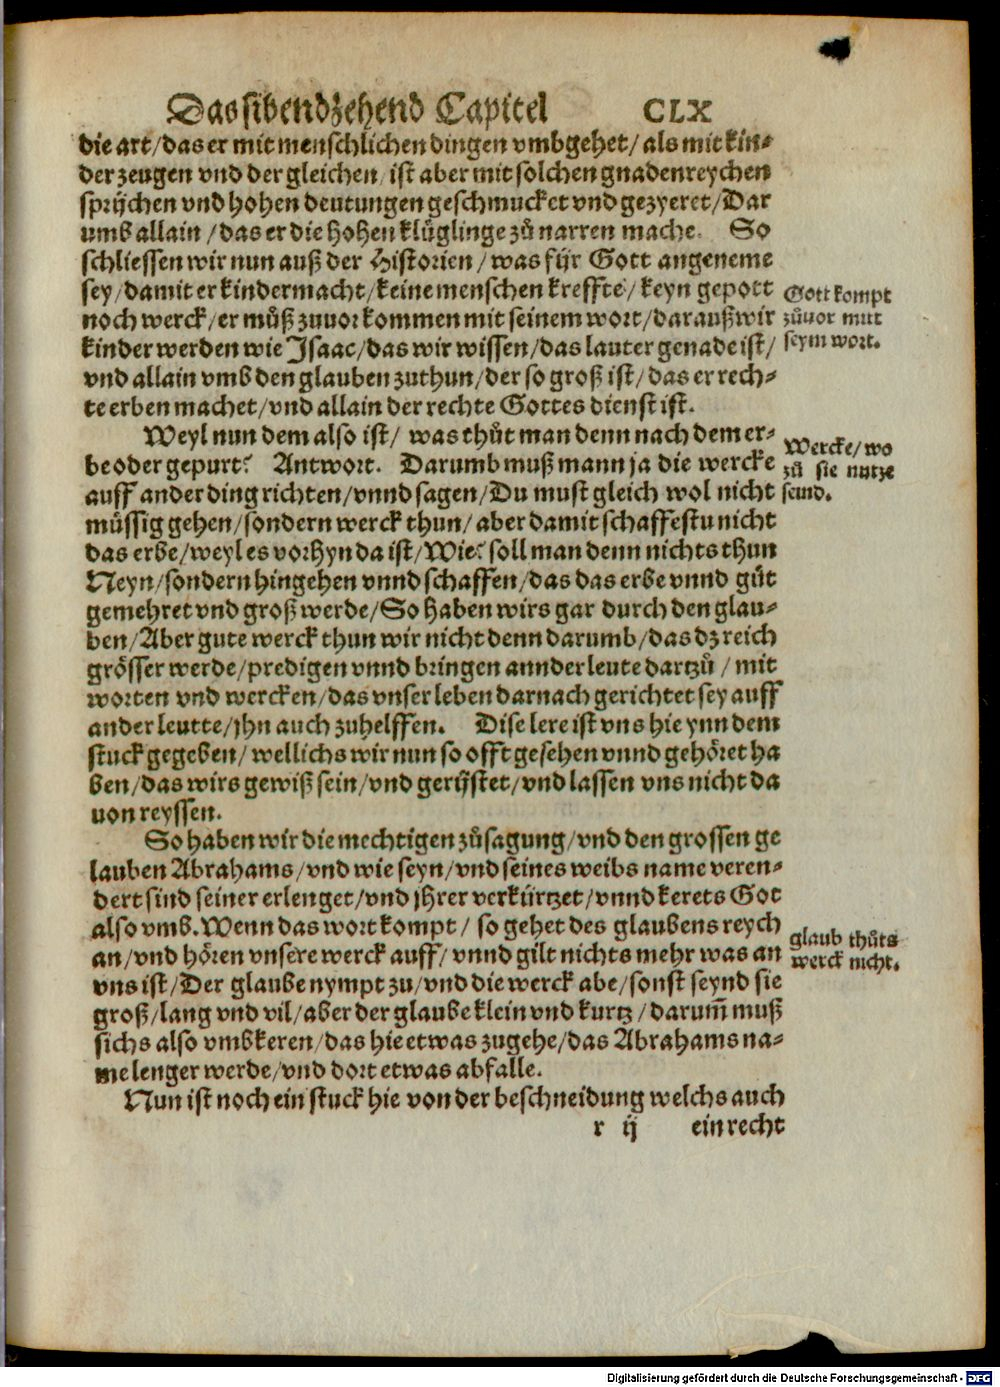 Das sibendzehend Capitel CLX
die art/das er mit menschlichen dingen vmbgehet/ als mit kin-
der zeugen vnd der gleichen/ ist aber mit solchen gnadenreychen
sprüchen vnd hohen deutungen geschmucket vnd gezyeret/Dar
umb allain /das er die hohen klüglinge zů narren mache. So
schliessen wir nun auß der Historien/was für Gott angeneme
sey/damit er kinder macht/keine menschen kreffte/keyn gepott
noch werck/er můß zuuor kommen mit seinem wort/darauß wir
kinder werden wie Isaac/das wir wissen/das lauter genade ist/
vnd allain vmb den glauben zuthun/der so groß ist/das er rech-
te erben machet/vnd allain der rechte Gottes dienst ist.
Gott kompt
zůuor mitt
seym wort.
Weyl nun dem also ist/ was thůt man denn nach dem er-
be oder gepurt? Antwort. Darumb muß mann ja die wercke
auff ander ding richten/vnnd sagen/Du must gleich wol nicht
müssig gehen/sondern werck thun/aber damit schaffestu nicht
das erbe/weyl es vorhyn da ist/Wie? soll man denn nichts thun
Neyn/sondern hingehen vnnd schaffen/das das erbe vnnd gůt
gemehret vnd groß werde/So haben wirs gar durch den glau-
ben/Aber gute werck thun wir nicht denn darumb/das dz reich
grösser werde/predigen vnnd bringen annder leute dartzů/ mit
worten vnd wercken/das vnser leben darnach gerichtet sey auff
ander leutte/jhn auch zuhelffen. Dise lere ist vns hie ynn dem
stuck gegeben/wellichs wir nun so offt gesehen vnnd gehöret ha
ben/das wirs gewiß sein/vnd gerüstet/vnd lassen vns nicht da
uon reyssen.
Wercke/wo
zů sie nutze
seind.
So haben wir die mechtigen zůsagung/vnd den grossen ge
lauben Abrahams/vnd wie seyn/vnd seines weibs name veren-
dert sind seiner erlenget/vnd jhrer verkürtzet/vnnd kerets Got
also vmb. Wenn das wort kompt/ so gehet des glaubens reych
an/vnd hören vnsere werck auff/vnnd gilt nichts mehr was an
vns ist/Der glaube nympt zu/vnd die werck abe/sonst seynd sie
groß/lang vnd vil/aber der glaube klein vnd kurtz/darum̃ muß
sichs also vmbkeren/das hie etwas zugehe/das Abrahams na-
me lenger werde/vnd dort etwas abfalle.
glaub thůts
werck nicht.
Nun ist noch ein stuck hie von der beschneidung welchs auch
r ij ein recht
Digitalisierung gefördert durch die Deutsche Forschungsgemeinschaft - DFG